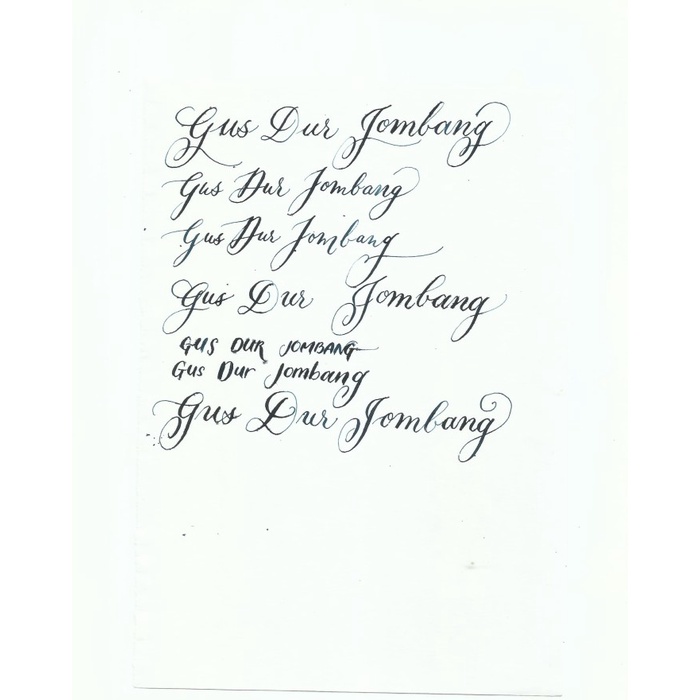 Gus Dur Jombang
Gus Dur Jombang
Gus Dur Jombang
Gus Dur Jombang
GUS DUR JOMBANG
Gus Dur Jombang
Gus Dur Jombang